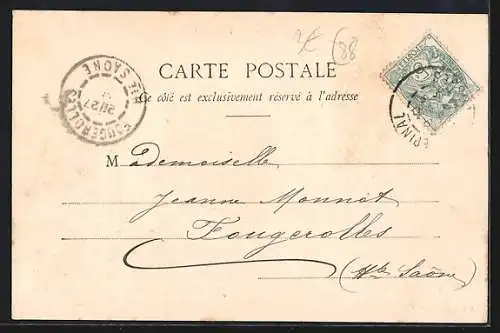 88
CARTE POSTALE
Ce côté est exclusivement réservé à l'adresse
FOUGEROLLES
Hte SAONE
EPINAL
Mademoiselle
Jeanne Monnot
Fougerolles
(Hte Saône)